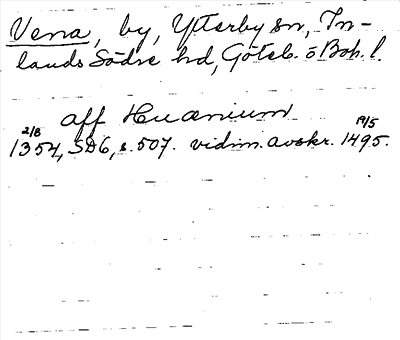 Vena, by, Ytterby sn, In-
lands Södre hd, Göteb. o Boh. l.
aff Huænium
2/8 19/5
1354, SD6, s. 507. vidim. avskr. 1495.